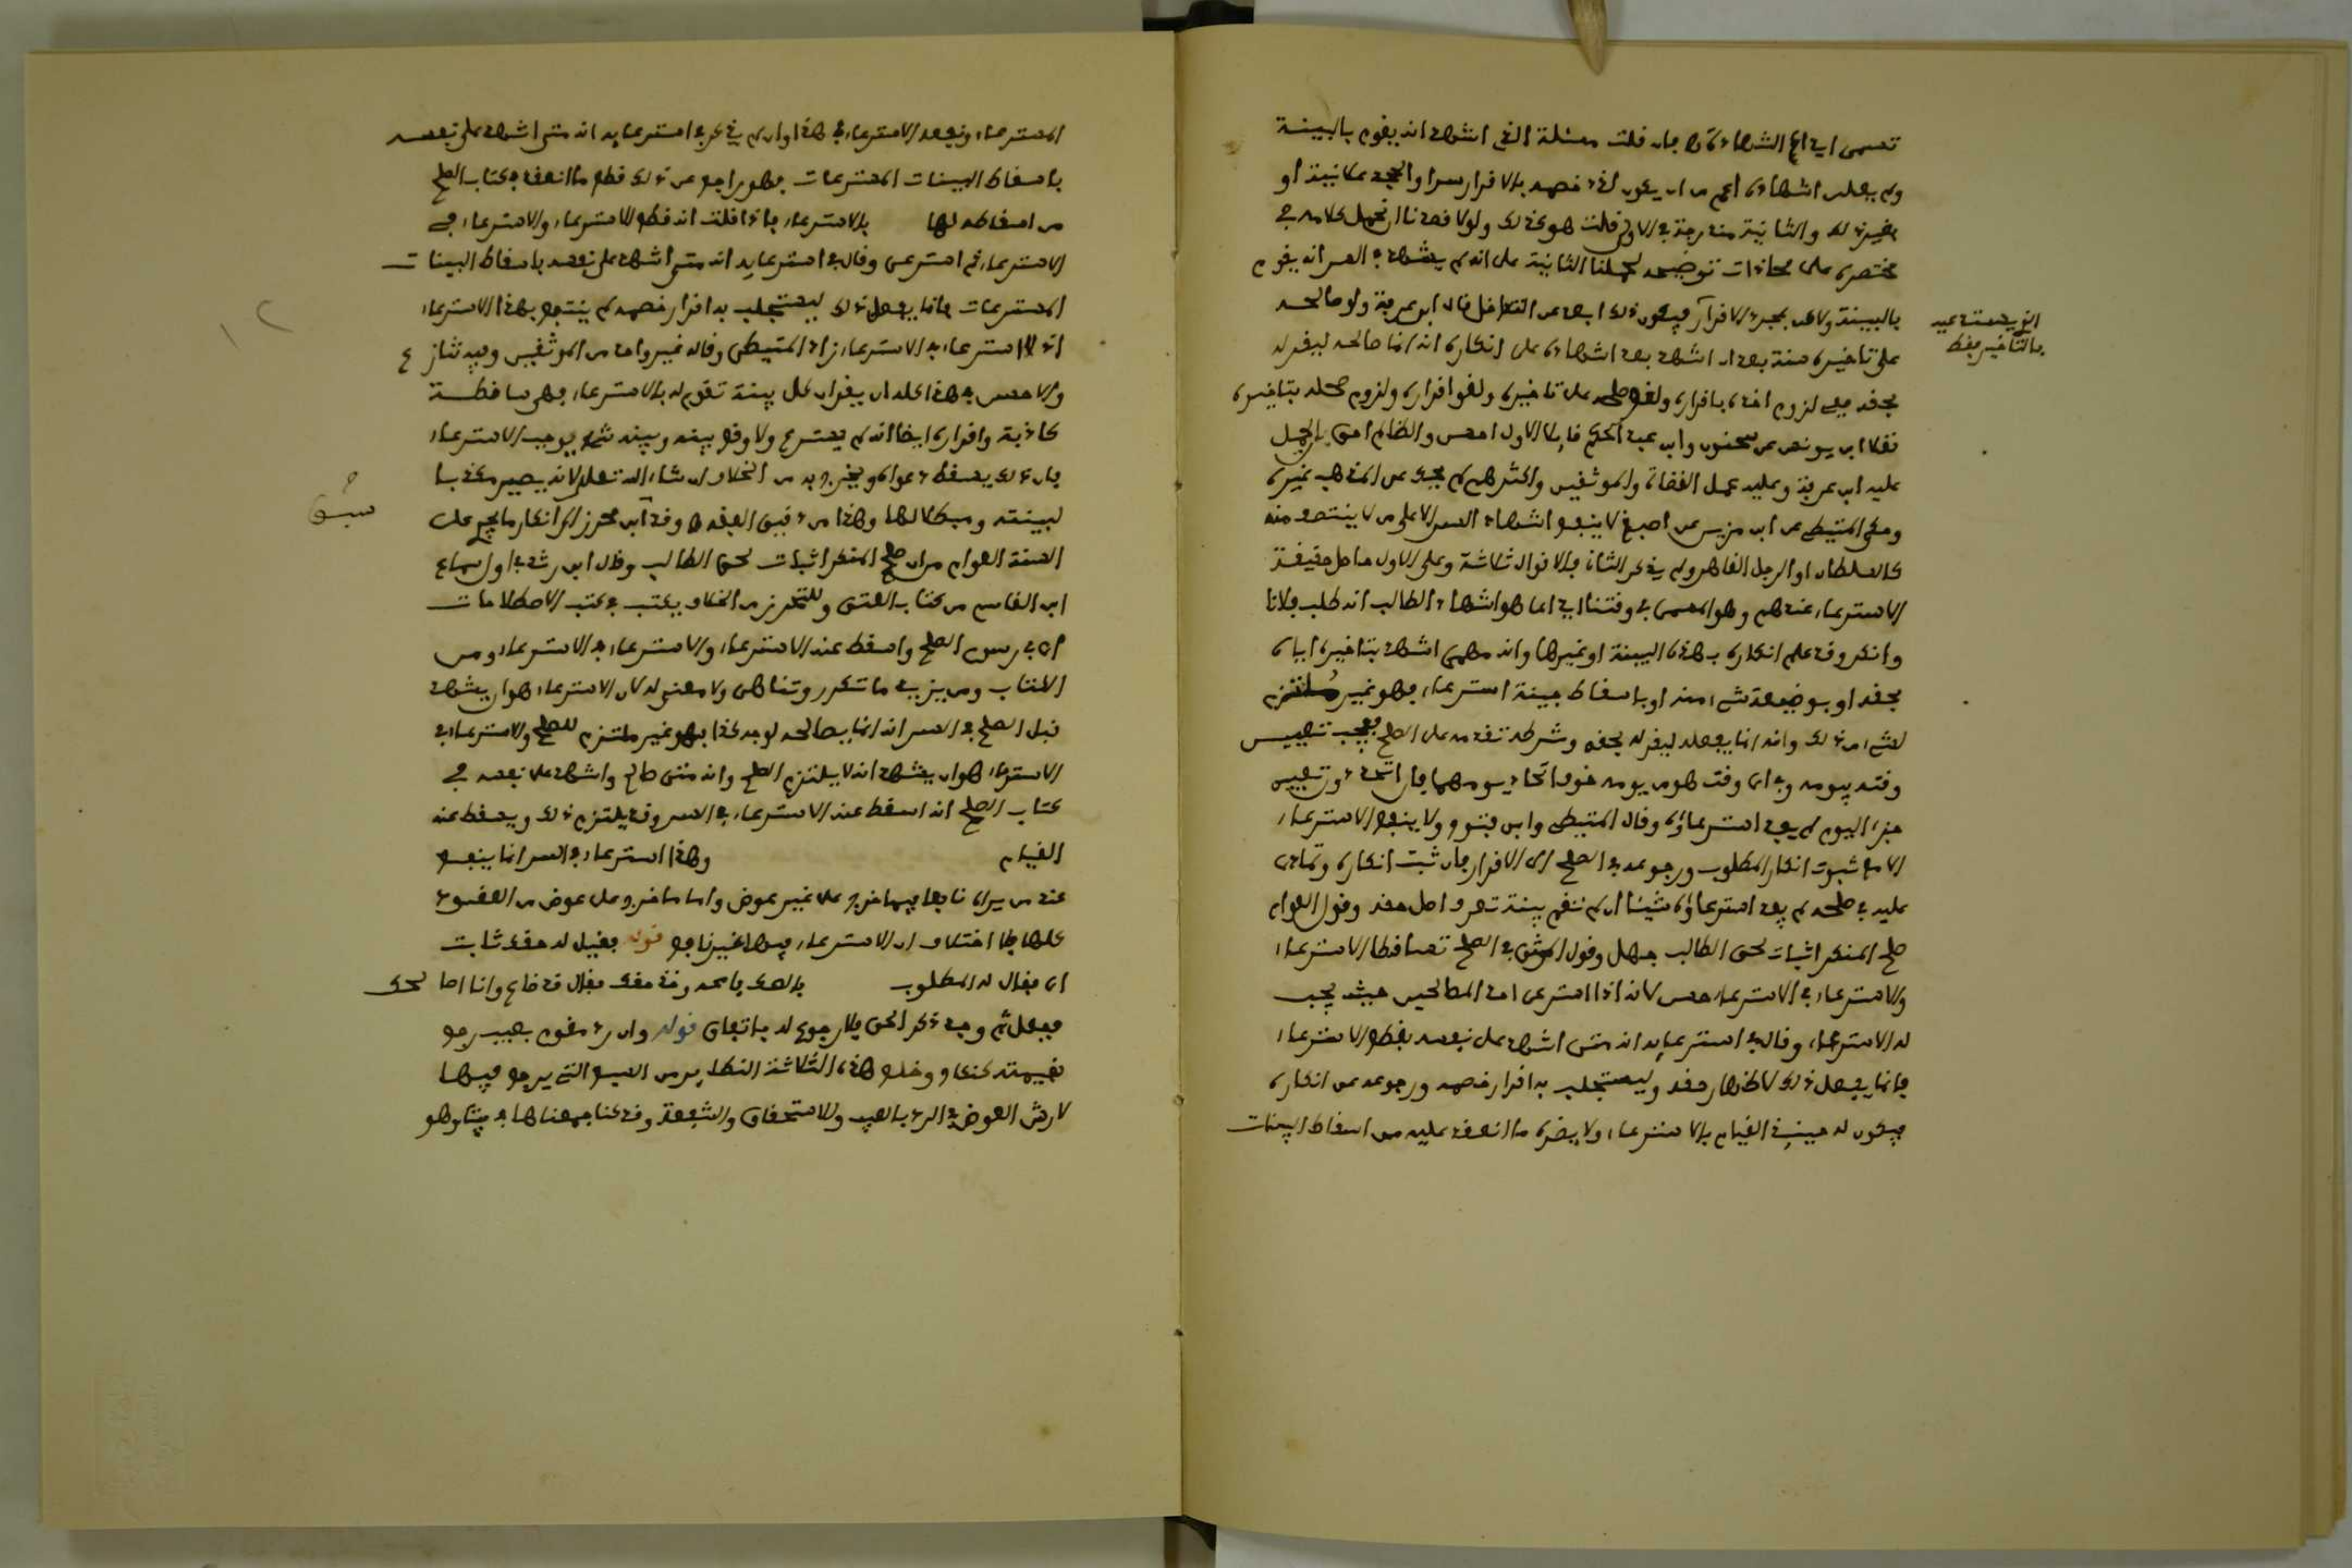 تسمى ايداع الشهادة فان قلت مسئلة الذى اشهد انه يقوم بالبينة
ولم يعلن اشهاده اعم من ان يكون خصمه بالاقرار سرا او الحجة غائبة او
بغير ذلك والثانية مندرجة في الاولى قلت هو كذلك ولولا قصدنا ان نحمل كلامه في
مختصره على محاذات توضيحه لحملنا الثانية على انه لم يشهد في السر انه يقوم
بالبينة ولا من بمجرد الاقرار فيكون ذلك ابعد من التداخل قال ابن عرفة ولو صالحه
على تاخيره سنة بعد ان اشهد بعد اشهاده على انكاره انه انما صالحه ليقر له
بحقه ففى لزوم اخذه باقراره ولغو صلحه على تاخيره ولغو اقراره ولزوم صلحه بتاخيره
نقلا ابن يونس عن سحنون وابن عبد الحكم قايلا الاول احسن والظالم احق ان يحمل
عليه ابن عرفة وعليه عمل القضاة والموثقين واكثرهم لم يحك عن المذهب غيره
وحكى المتيطى عن ابن مزين عن اصبغ لا ينفع اشهاد السر الا على من لا ينتصف منه
كالسلطان او الرجل القاهر ولم يذكر الثانى فالاقوال ثلاثة وعلى الاول حاصل حقيقة
الاسترعاء عندهم وهو المسمى في وقتنا ايداعا هو اشهاد الطالب انه طلب فلانا
وانكره وقد علم انكاره بهذه البينة او غيرها وانه مهمى اشهد بتاخيره اياه
بحقه او بوضيعة شىء منه او باسقاط بينة استرعاء فهو غير ملتزم
لشىء من ذلك وانه انما يفعله ليقر له بحقه وشرطه تقدمه على الصلح فيجب تعيين
وقته بيومه وفي اى وقت هو من يومه خوف اتحاد يومهما فان اتحد دون تعيين
جزء اليوم لم يفد استرعاؤه وقال المتيطى وابن فتوح ولا ينفع الاسترعاء
الا مع ثبوت انكار المطلوب ورجوعه في الصلح الى الاقرار فان ثبت انكاره وتمادى
عليه في صلحه لم يفد استرعاؤه شيئا ان لم تقم بينة تعرف اصل حقه وقول العوام
صلح المنكر اثبات لحق الطالب جهل وقول الموثق في الصلح تساقطا الاسترعاء
والاسترعاء في الاسترعاء حسن لانه اذا استرعى احد المصالحين حيث يجب
له الاسترعاء وقال في استرعايه انه متى اشهد على نفسه بقطع الاسترعاء
فانما يفعل ذلك لاظهار حقه وليستجلب به اقرار خصمه ورجوعه عن انكاره
فيكون له حينئذ القيام بالاسترعاء ولا يضره ما انعقد عليه من اسقاط البينات
الذى يستدعيه
بالتاخير فقط
المسترعاة وينفعه الاسترعاء في هذا وان لم يذكر في استرعايه انه متى اشهد على نفسه
باسقاط البينات المسترعات فهو راجع عن ذلك قطع ما انعقد في كتاب الصلح
من اسقاطه لها بالاسترعاء فاذا قلت انه قطع الاسترعاء والاسترعاء في
الاسترعاء ثم استرعى وقال في استرعايه انه متى اشهد على نفسه باسقاط البينات
المسترعات فانما يفعل ذلك ليستجلب به اقرار خصمه لم ينتفع بهذا الاسترعاء
اذ لا استرعاء في الاسترعاء زاد المتيطى وقاله غير واحد من الموثقين وفيه تنازع
والاحسن في هذا كله ان يقول ان كل بينة تقوم له بالاسترعاء فهى ساقطة
كاذبة واقراره ايضا انه لم يسترع ولا وقع بينه وبينه شىء يوجب الاسترعاء
فان ذلك يسقط دعواه ويخرج به من الخلاف ان شاء الله تعلى لانه يصير مكذبا
لبينته ومبطلا لها وهذا من دقيق الفقه وقد ابن محرز الى انكار ما يجرى على
السنة العوام من ان صلح المنكر اثبات لحق الطالب وقال ابن رشد في اول سماع
ابن القاسم من كتاب العتق وللتحرز من الخلاف يكتب في كتب الاصطلاحات
اى في رسوم الصلح واسقط عنه الاسترعاء والاسترعاء في الاسترعاء ومن
الكتاب ومن يزيد ما تكرر وتناهى ولا معنى له لان الاسترعاء هو ان يشهد
قبل الصلح في السر انه انما يصالحه لوجه كذا فهو غير ملتزم للصلح والاسترعاء في
الاسترعاء هو ان يشهد انه لا يلتزم الصلح وانه متى صالح واشهد على نفسه في
كتاب الصلح انه اسقط عنه الاسترعاء في السر وقد يلتزم ذلك ويسقط عنه
القيام وهذا استرعاء في السر انما ينفع
عند من يراه نافعا فيما خرج على غير عوض واما ما خرج على عوض من العقود
كلها فلا اختلاف ان الاسترعاء فيها غير نافع قوله فقيل له حقك ثابت
اى فقال له المطلوب بالصك فامحه وخذ حقك فقال قد ضاع وانا اصالحك
ففعل ثم وجد ذكر الحق فلا رجوع له باتفاق قوله وان رد مقوم بعيب رجع
بقيمته كنكاح وخلع هذه الثلاثة النظاير من السبع التى يرجع فيها
لارش العوض في الرد بالعيب والاستحقاق والشفعة وقد كنا جمعناها في بيتين وهو
١٢